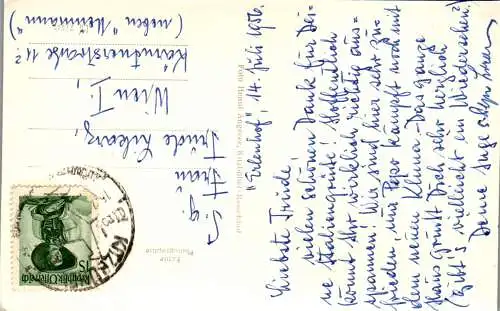 "Erlenhof", 14. Juli 1956.
Liebste Trude,
vielen schönen Dank für Dei-
ne Italiengrüße! Hoffentlich
könnt Ihr wirklich richtig aus-
spannen! Wir sind hier sehr zu-
frieden, nur Papo kämpft noch mit
dem neuen Klima. Das ganze
Haus grüßt Dich sehr herzlich
Gibt's vielleicht ein Wiedersehen?
Deine Inge
S. g.
Frau
Trude
Wien I.,
Kärntnerstraße 11?
(neben "Neumann")
Echte
Photographie
Foto Hannsl Angerer, Kitzbühel
Republik Österreich